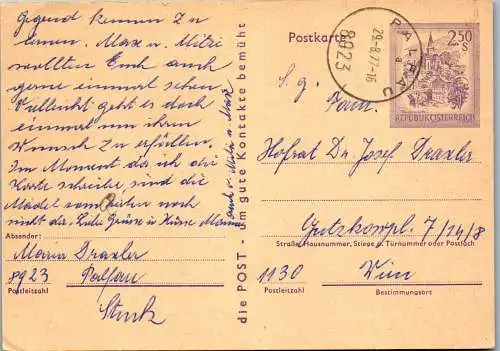 Gegend kennen zu
lernen. Max u. Mitzi
wollten Euch auch
gerne einmal sehen.
Vielleicht geht es doch
einmal um ihren
Wunsch zu erfüllen.
Im Moment da ich die
Karte schreibe, sind die
Mädel vom reiten noch
nicht da. Liebe Grüsse u. Küsse
auch v. Mitzi u. Max
Absender:
Maria Draxler
8923 Palfau
Postleitzahl
die POST - um gute Kontakte bemüht
Postkarte
PALFAU
a
29-8.77-16
8923
2.50
S
REPUBLIK ÖSTERREICH
S. g.
Fam.
Hofrat Dr. Josef Draxler
7/14/8
Straße, Hausnummer, Stiege u. Türnummer oder Postfach
1130 Wien
Postleitzahl
Bestimmungsort